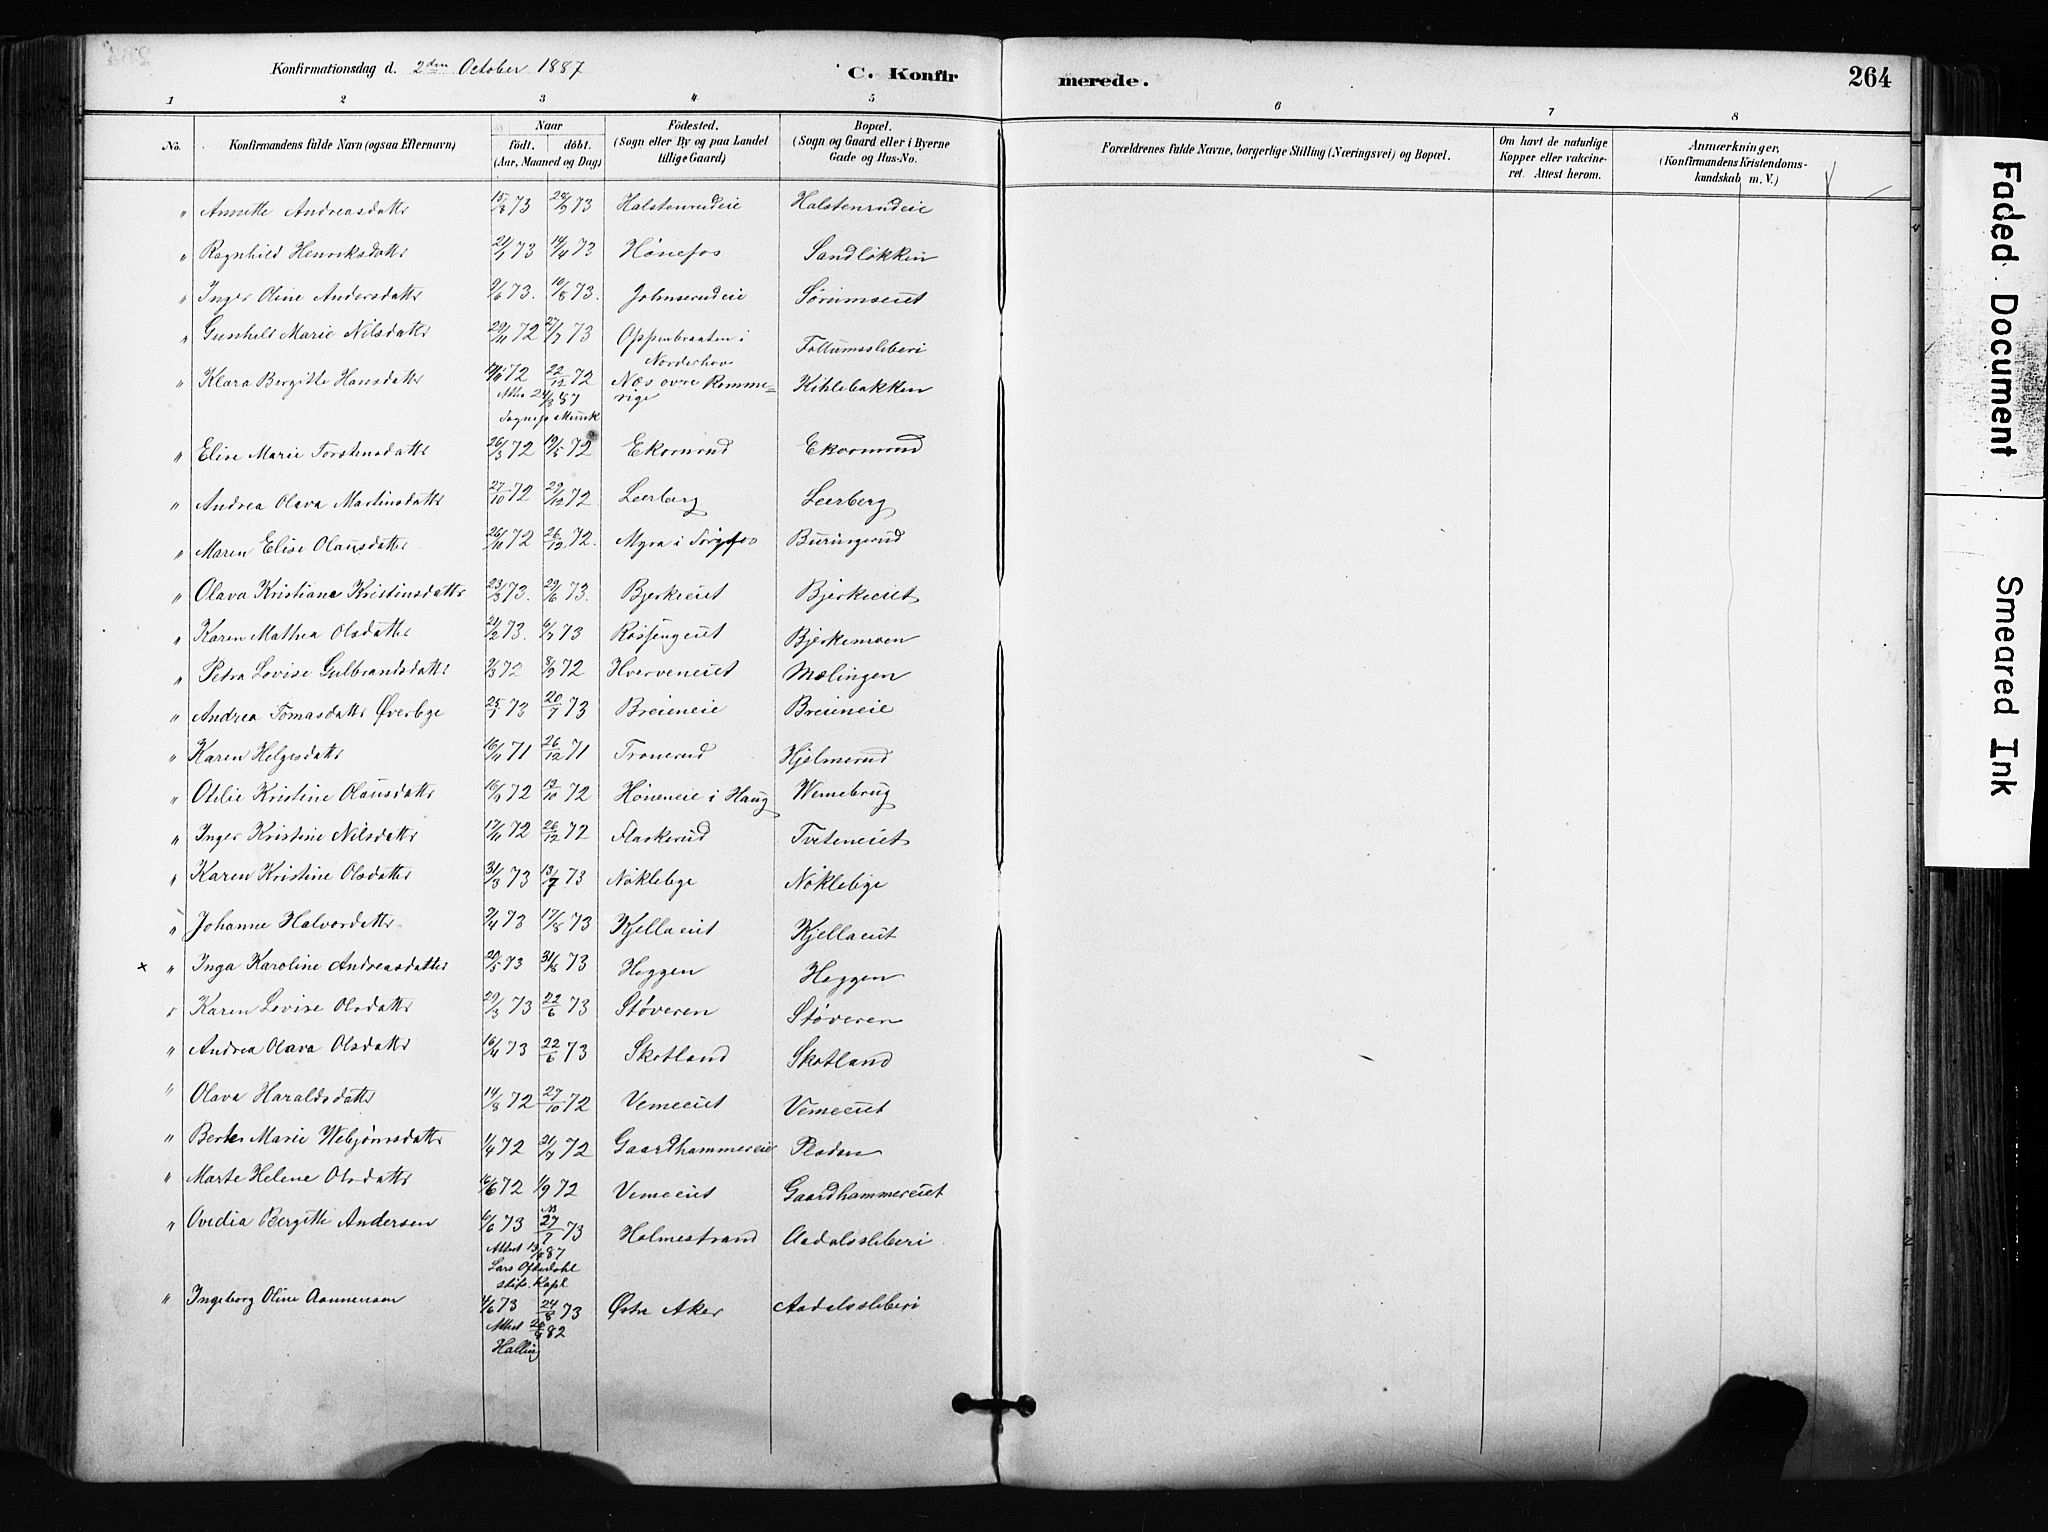 Konfirmationsdag d. 2den October 1887 C. Konfir merede. 264
1 2 3 4 5 6 7 8
No. Konfirmandens fulde Navn (ogsaa Efternavn) Naar födt. döbt. (Aar, Maaned og Dag) Födested. (Sogn eller By og paa Landet tillige Gaard) Bopæl. (Sogn og Gaard eller i Byerne Gade og Hus-No. Forældrenes fulde Navne, borgerlige Stilling (Næringsvei) og Bopæl. Om havt de naturlige Kopper eller vakcineret. Attest herom. Anmærkninger, (Konfirmandens Kristendomskundskab m. V.)
" Annette Andreasdatter 15/8 73 73 Halstenrudeie Halstenrudeie
" Ragnhild Henriksdatter 73 14/4 73 Hønefos Sandløkken
" Inger Oline Andersdatter 9/6 73. 10/8 73. Johnsrudeie Sørumseiet
" Gunhild Marie Nilsdatter 29/11 72 27/7 73 Oppenbraaten i Norderhov Tollumssleberi
" Klara Bergitte Hansdatter 72 22/12 72 Næs øvre Romme-rige Kihlebakken
Sognep. Munk
" Elise Marie Torstensdatter 26/3 72 19/5 72 Ekornrud Ekornrud
" Andrea Olava Martinsdatter 27/10 72 29/12 72 Leerberg Leerberg
" Maren Elise Olausdatter 26/10 72 26/12 72. Myra i Buringerud
" Olava Kristiane Kristinsdatter 23/3 73. 29/6 73. Bjerkeeiet Bjerkeeiet
" Karen Mathea Olsdatter 21/2 73. 6/7 73 Rossengeiet Bjerkemoen
" Petra Lovise Gulbrandsdatter 2/3 72 8/9 72 Hverveneiet Mælingen
" Andrea Tomasdatter Øverbye 25/1 73 20/7 73 Breieneie Breieneie
" Karen Helgesdatter 16/11 71 26/12 71 Tronerud Hjelmerud
" Otilie Kristine Olausdatter 16/7 72 13/10 72 Høneneie i Haug Wemebrug
" Inger Kristine Nilsdatter 17/11 72 26/12 72 Flaskerud Tveteneiet
" Karen Kristine Olsdatter 31/3 73 13/7 73 Nøklebye Nøklebye
" Johanne Halvordatter 9/4 73 17/8 73 Kjellaeiet Kjellaeiet
x " Inga Karoline Andreasdatter 29/5 73 31/8 73 Heggen Heggen
" Karen Lovise Olsdatter 29/3 73 22/6 73 Støveren Støveren
" Andrea Olava Olsdatter 16/4 73 22/6 73 Skotland Skotland
" Olava Haraldsdatter 14/8 72 27/10 72 Vemeeiet Vemeeiet
" Berte Marie Webjørnsdatter 1/4 72 21/7 72 Gaardhammereie Pladen
" Marte Helene Olsdatter 16/6 72 1/9 72 Vemeeiet Gaardhammereiet
" Ovedia Bergitte Andersen 6/6 73 27/7 73 Holmestrand Aadalssleberi
Attest 87
Lars Oftedahl
stifts. Kapl
" Ingeborg Oline Aamensen 4/6 73 24/8 73 Østre Aker Aadalssleberi
Attest 82
Halling
Faded Document
Smeared Ink